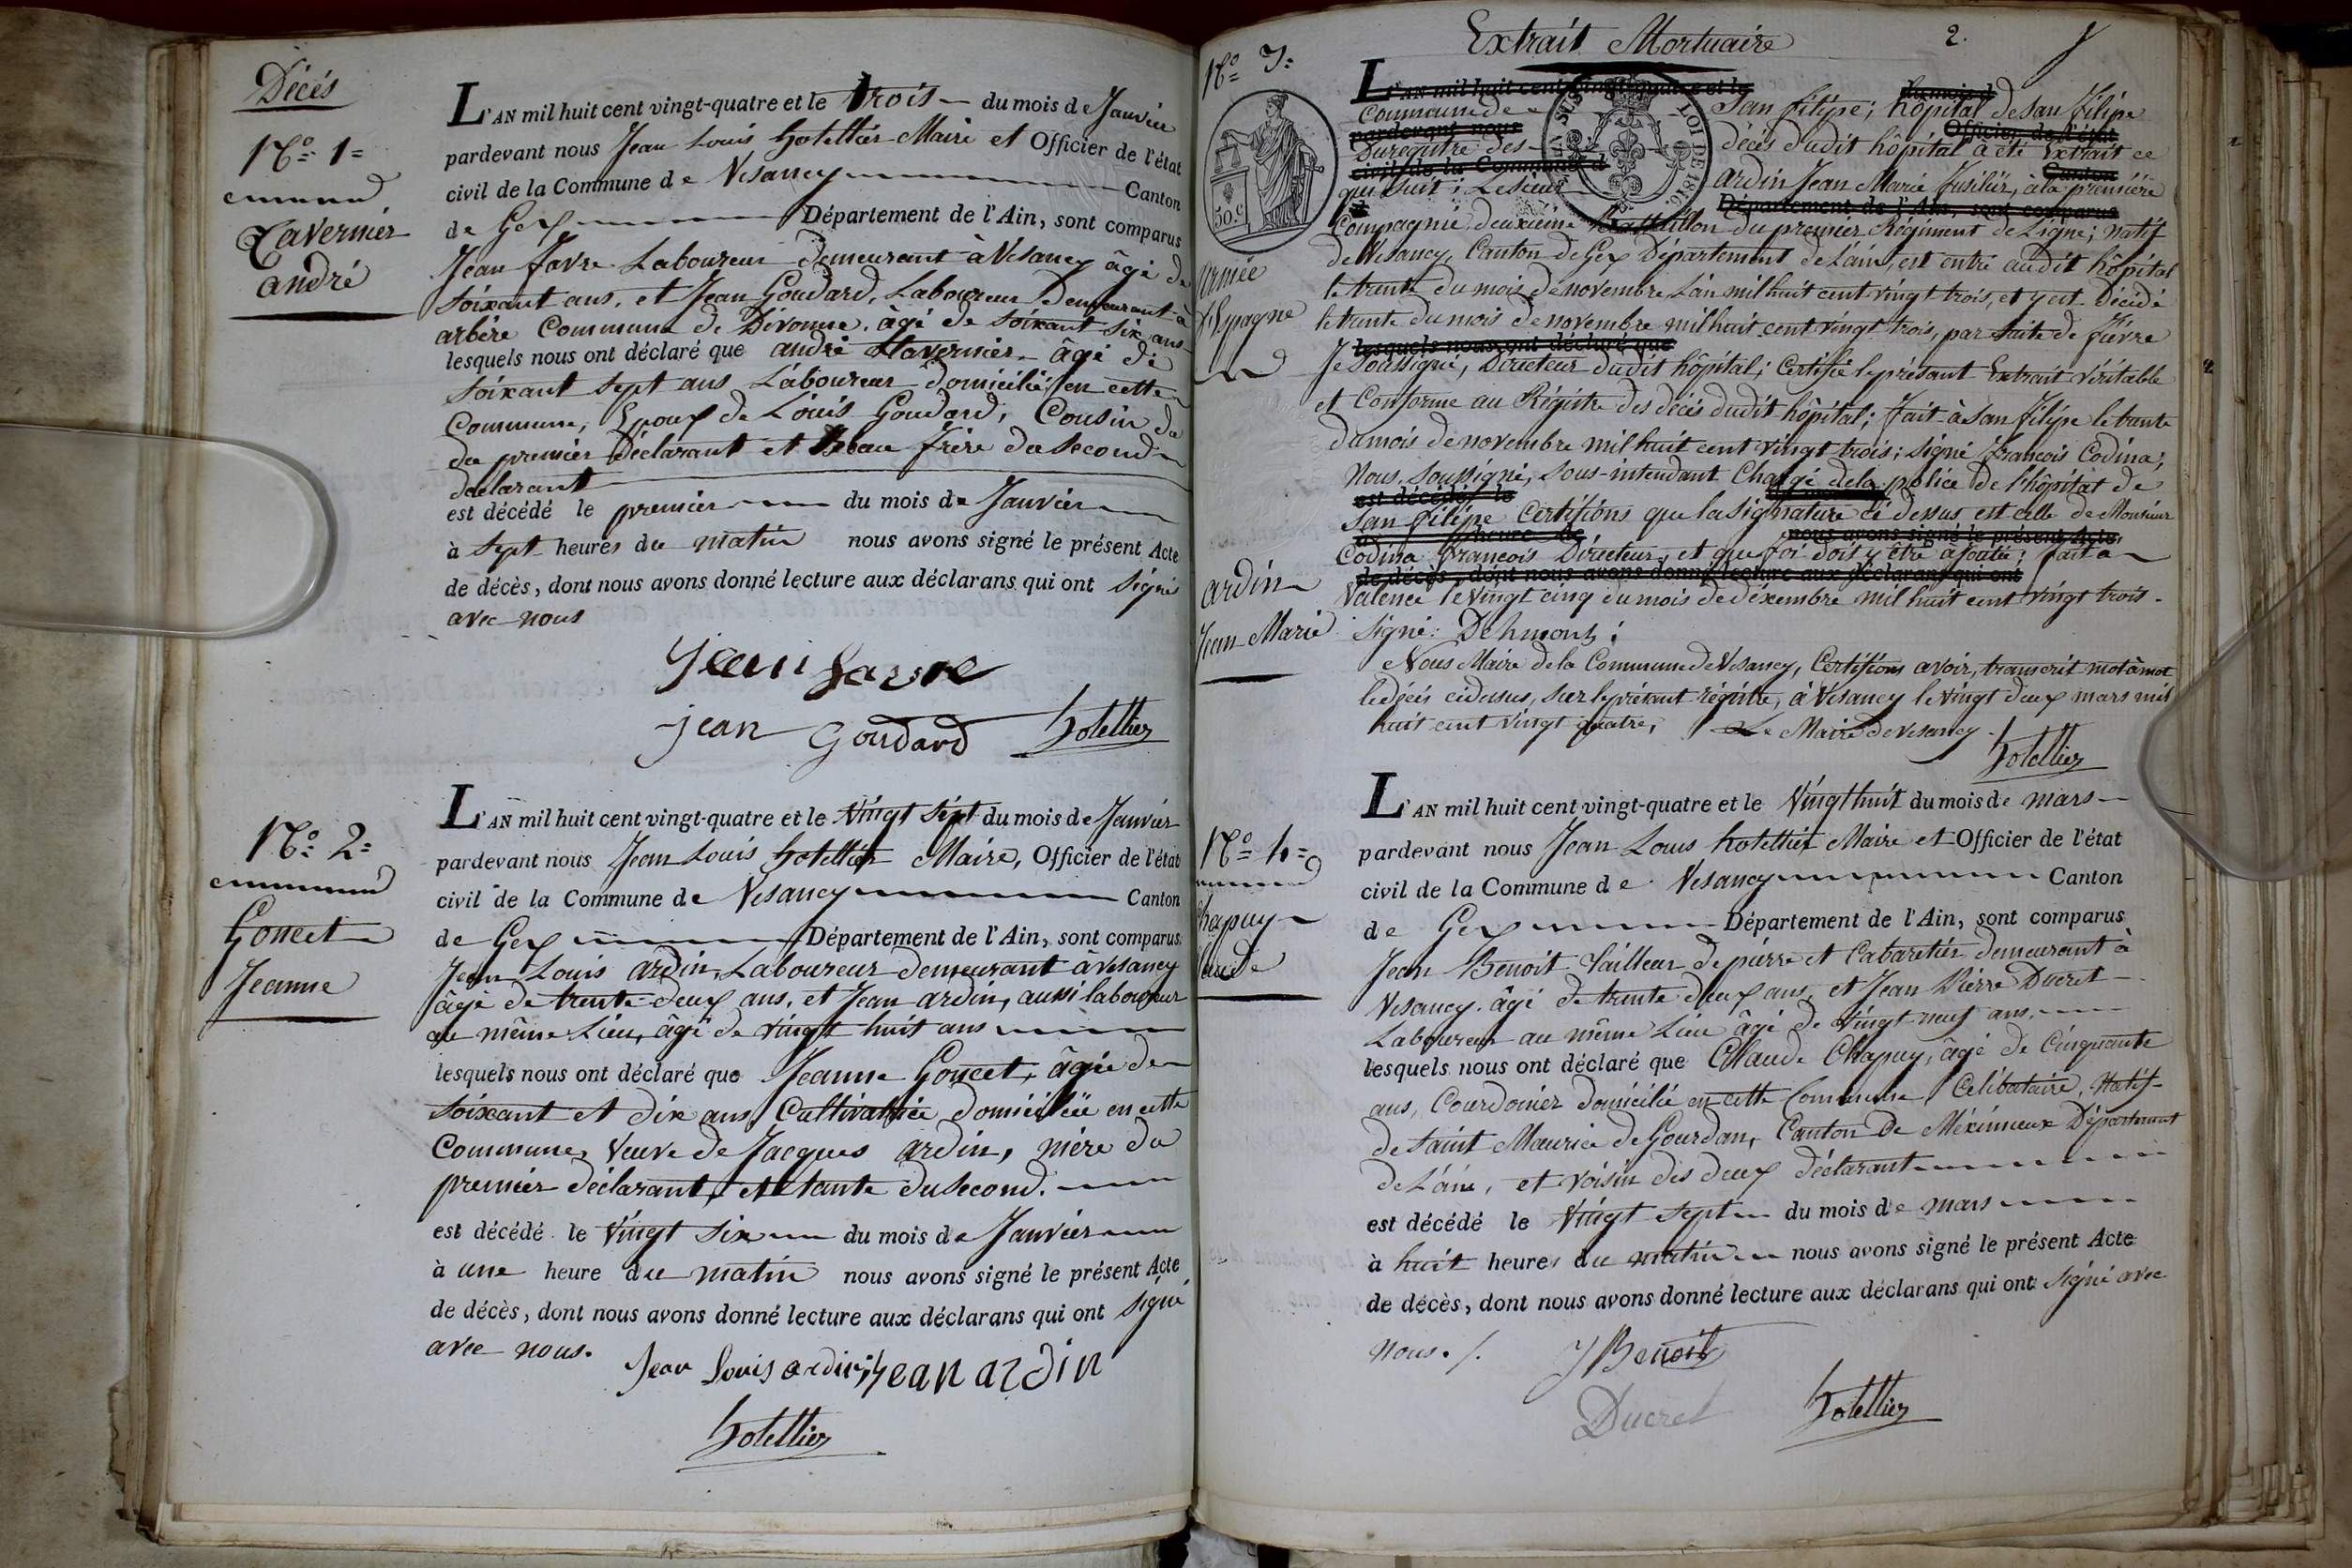 Décés
N.° 1=
Tavernier
andré
L'AN mil huit cent vingt-quatre et le trois du mois de Janvier
pardevant nous Jean Louis hotellier Maire et Officier de l'état
civil de la Commune de Vesancy Canton
de Gex Département de l'Ain, sont comparus
Jean favre Laboureur demeurant à Vesancy âgé de
soixant ans, et Jean Goudard, Laboureur demeurant à
arbére Commune de Divonne, âgé de soixant six ans
lesquels nous ont déclaré que andré tavernier âgé de
soixant sept ans Laboureur domicilié en cette
Commune, Epoux de Louis Goudard, Cousin du
du premier déclarant et beau frére du second
declarant
est décédé le premier du mois de Janvier
à sept heures du matin nous avons signé le présent Acte
de décès, dont nous avons donné lecture aux déclarans qui ont signé
avec nous
jean favre
jean Goudard hotellier
N.° 2=
Goncet
Jeanne
L'AN mil huit cent vingt-quatre et le vingt sept du mois de Janvier
pardevant nous Jean Louis hotellier Maire, Officier de l'état
civil de la Commune de Vesancy Canton
de Gex Département de l'Ain, sont comparus
Jean Louis ardin, Laboureur demeurant à Vesancy
âgé de trente deux ans, et Jean ardin, aussi laboureur
au même Lieu, âgé de vingt huit ans
lesquels nous ont déclaré que Jeanne Goncet, âgée de
soixant et dix ans Cultivatrice domiciliée en cette
Commune, Veuve de Jacques ardin, mére du
premier déclarant, et tante du second.
est décédé le vingt six du mois de Janvier
à une heure du matin nous avons signé le présent Acte
de décès, dont nous avons donné lecture aux déclarans qui ont signé
avec nous.
Jean Louis ardin jean ardin
hotellier
Extrait Mortuaire 2.
N.° 3=
armée
d'Espagne
ardin
Jean Marie
30.c
LOI DE 1816
L'AN mil huit cent vingt-quatre et le du mois d
Commune de San filipe; hôpital de san filipe
pardevant nous Officier de l'état
Du registre des décés dudit hôpital a été Extrait ce
civil de la Commune d Canton
qui suit; Le sieur ardin Jean Marie fusilier, à la premiére
Département de l'Ain, sont comparus
Compagnie deuxieme Battaillon du premier Régiment de Ligne; natif
de Vesancy, Canton de Gex Département de L'ain, est entré audit hôpital
le trente du mois de novembre L'an mil huit cent vingt trois, et y est Décédé
le trente du mois de novembre mil huit cent vingt trois, par suite de fiévre
lesquels nous ont déclaré que
Je soussigné, Directeur dudit hôpital; Certifie le présant Extrait véritable
et Conforme au Régistre des décés dudit hôpital; fait à San filipe le trente
du mois de novembre mil huit cent vingt trois; signé francois Codina;
Nous, soussigné, sous-intendant Chargé de la police de l'hôpital de
est décédé le
san filipe Certifions que la signature ci dessus est celle de Monsieur
à heure de nous avons signé le présent Acte
Codina francois Directeur, et que foi doit y être ajoutée; fait a
de décès, dont nous avons donné lecture aux déclarans qui ont
Valence le vingt cinq du mois de décembre mil huit cent vingt trois.
signé:
Nous Maire de la Commune de Vesancy, Certifions avoir, transcrit mot à mot
le décés ci dessus, sur le présant régistre, à Vesancy le vingt deux mars mil
huit cent vingt quatre, Le Maire de Vesancy
hotellier
N.° 4=
Chapuy
Claude
L'AN mil huit cent vingt-quatre et le Vingt huit du mois de mars
pardevant nous Jean Louis hotellier Maire et Officier de l'état
civil de la Commune de Vesancy Canton
de Gex Département de l'Ain, sont comparus
Jean Benoit tailleur de piérre et Cabaretier demeurant à
Vesancy, âgé de trente deux ans, et Jean Piérre Ducret
Laboureur au même Lieu âgé de vingt neuf ans,
lesquels nous ont déclaré que Claude Chapuy, âgé de Cinquante
ans, Courdonier domicilié en cette Commune, Celibataire, Natif
de saint Maurice de Gourdan, Canton de Méximieux Département
de L'ain, et voisin des deux déclarant
est décédé le vingt sept du mois de mars
à huit heures du matin nous avons signé le présent Acte
de décès, dont nous avons donné lecture aux déclarans qui ont signé avec
nous. /. J Benoit
Ducret hotellier